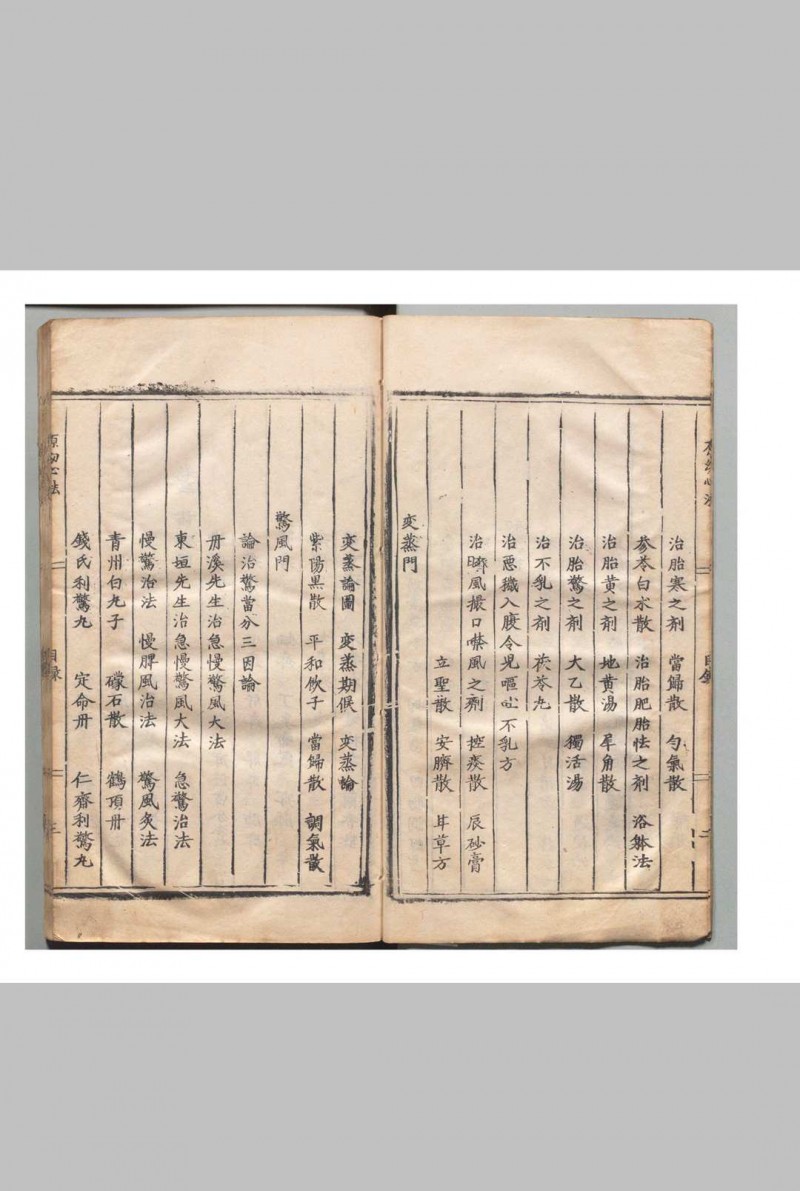 治胎寒之剤　當歸散　勻氣散
參苓白朮散　治胎肥胎怯之剤　浴躰法
治胎黃之剤　地黃湯　犀角散
治胎驚之剤　大乙散　獨活湯
治不乳之剤　茯苓丸
治惡穢入腹令児嘔吐不乳方
治臍風撮口噤風之剤　控痰散　辰砂膏
立聖散　安臍散　甘草方
変蒸門
目錄
二
変蒸論圖　変蒸期候　変蒸論
紫陽黑散　平和飲子　當歸散　調氣散
驚風門
論治驚當分三因論
丹溪先生治急慢驚風大法
東垣先生治急慢驚風大法　急驚治法
慢驚治法　慢脾風治法　驚風灸法
青州白丸子　礞石散　鶴頂丹
錢氏利驚丸　定命丹　仁齋利驚丸
原幼心法
目录
三